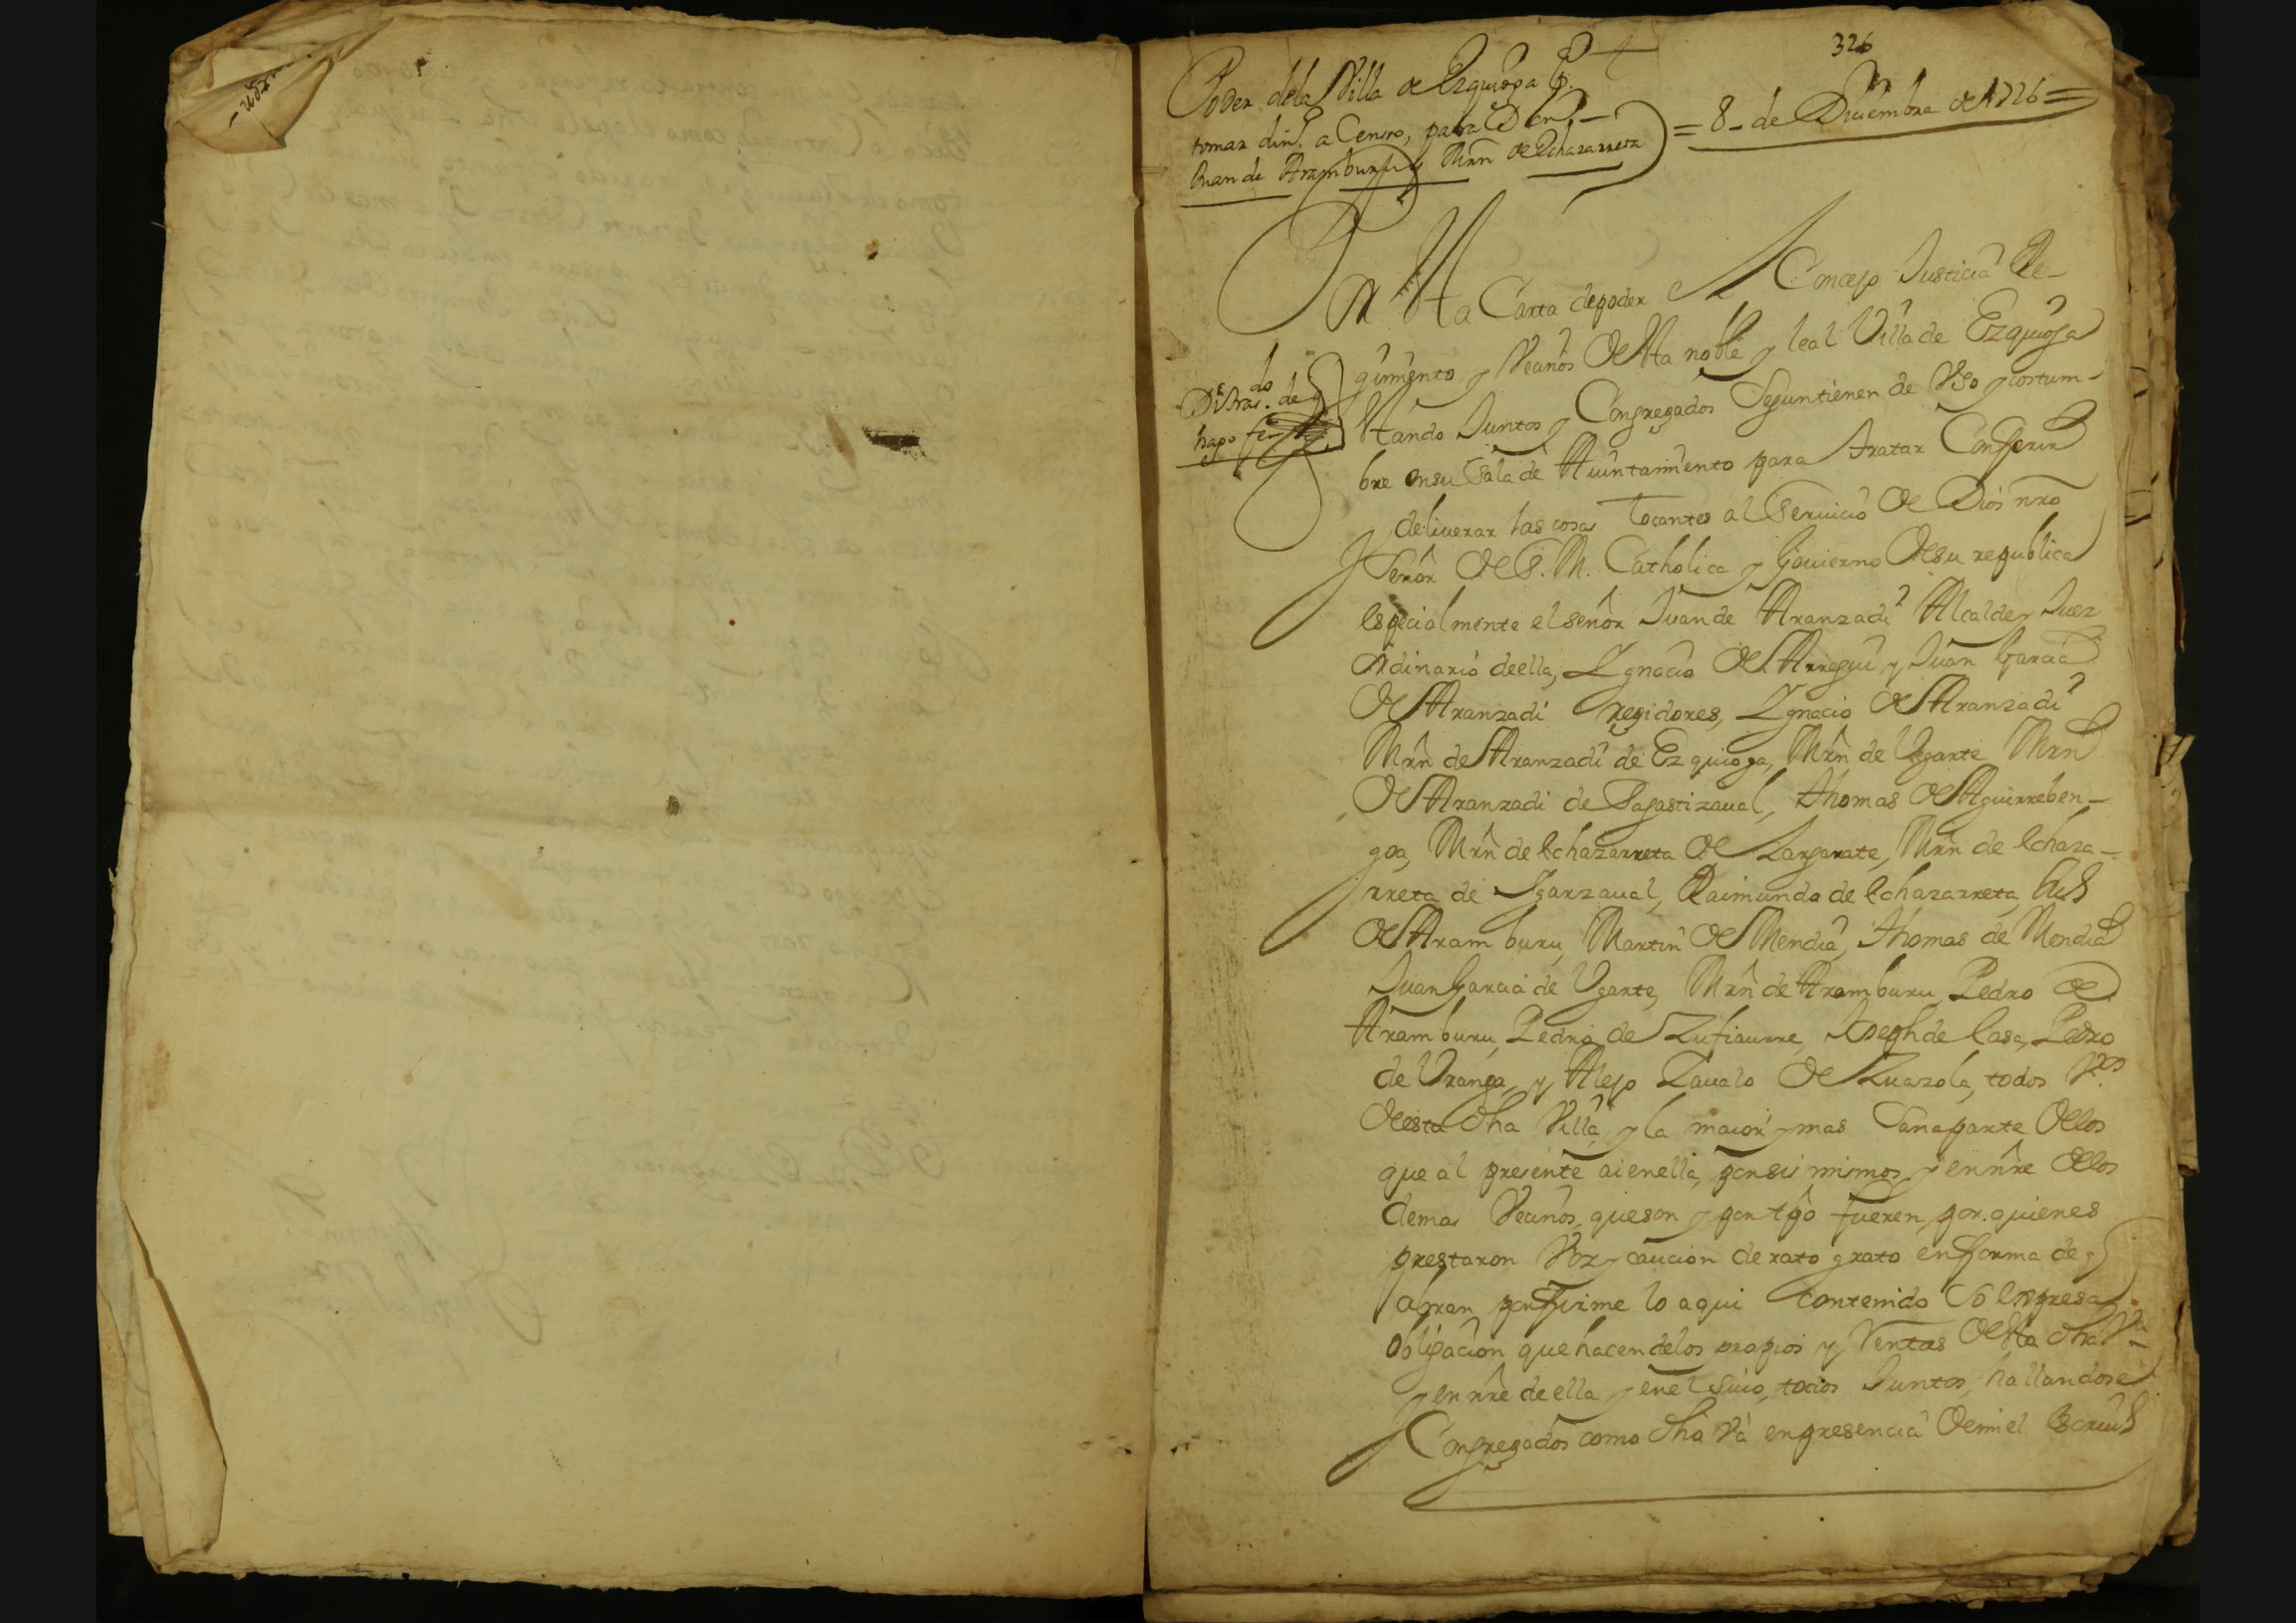 326
Poder dela Villa de Ezquioga p.ª
tomar din.º a Censo, para
Juan de Aramburu y Mrn de Echazarreta
= 8_ de Diciembre de 1726 =
En Sta Carta depoder el Concejo Justicia Re-
gimiento y Vecinos de Sta noble y leal Villa de Ezquioga
Stando Juntos y Congregados Seguntienen de Vso y costum-
bre en su Sala de Aiuntamiento para tratar Conferir
y deliverar las cosas Tocantes al Servicio de Dios nro
Señor de S. M. Catholica y Govierno de su republica
especialmente el señor Juan de Aranzadi Alcalde y Juez
Ordinario de ella, Ignacio de Arregui y Juan Garcia
de Aranzadi regidores, Ignacio de Aranzadi
Mrn de Aranzadi de Ezquioga, Mrn de Vgarte Mrn
de Aranzadi de Sagastizaval, Thomas de Aguirreben-
goa, Mrn de Echazarreta de Zargarate, Mrn de Echaza-
rreta de Igarzaval, Raimundo de Echazarreta,
de Aramburu, Martin de Mendia, Thomas de Mendia
Juan Garcia de Vgarte, Mrn de Aramburu, Pedro de
Aramburu, Pedro de Zufiaurre, Joseph de Casa, Pedro
de Vranga, y Alejo Zavalo de Zuazola, todos Vºs
de esta dha Villa y la maior y mas Sana parte dellos
que al presente ai en ella, por si mismos y en nre de los
demas Vecinos, que son y por tpo fueren, por quienes
prestaron Voz y caucion de rato grato en forma de q
abran por firme lo aqui Contenido So Expresa
obligacion que hacen de los propios y Rentas de Sta dha Vª
y en nre de ella y en el Suio, todos Juntos, hallandose
Congregados como dho Vá en presencia de mi el Escriu
Di tras.do de
hago fee